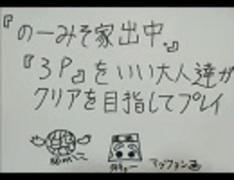 『のーみそ家出中。』
『3P』をいい大人達が
クリアを目指してプレイ